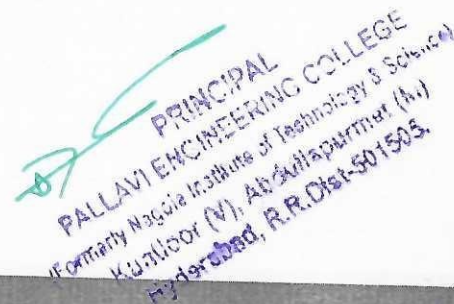 PRINCIPAL
PALLAVI ENGINEERING COLLEGE
(Formerly Nagole Institute of Technology & Science)
Kuntloor (V), Abdullapurmet (M)
Hyderabad, R.R.Dist-501505.